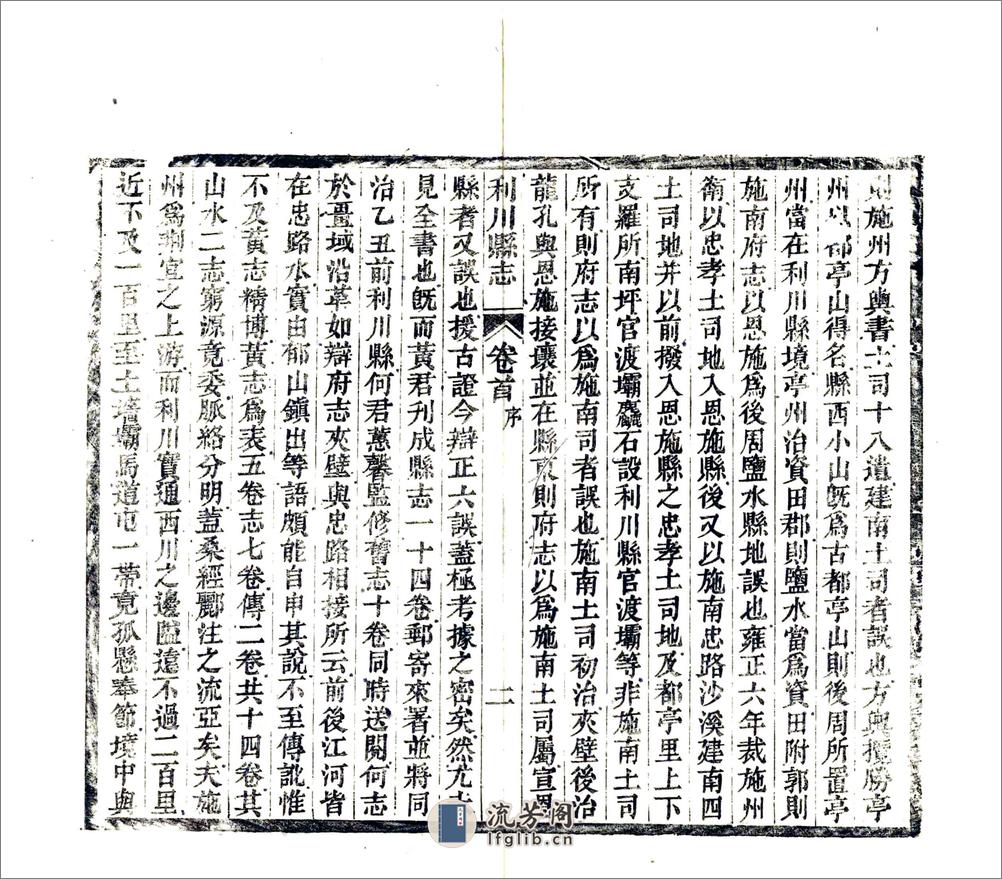 施州方輿書土司十八遺建南土司者誤也方輿攬勝亭
州以都亭山得名縣西小山旣爲古都亭山則後周所置亭
州當在利川縣境亭州治資田郡則鹽水當爲資田附郭則
施南府志以恩施爲後周鹽水縣地誤也雍正六年裁施州
衛以忠孝土司地入恩施縣後又以施南忠路沙溪建南四
土司地并以前撥入恩施縣之忠孝土司地及都亭里上下
支羅所南坪官渡壩麤石設利川縣官渡壩等非施南土司
所有則府志以爲施南司者誤也施南土司初治夾壁後治
龍孔與恩施接壤並在縣東則府志以爲施南土司屬宣恩
利川縣志 卷首 序 二
縣者又誤也援古證今辯正六誤蓋極考據之密矣然尤未
見全書也旣而黃君刋成縣志一十四卷郵寄來署並將同
治乙丑前利川縣何君蕙馨監修舊志十卷同時送閱何志
於畺域沿革如辯府志夾壁與忠路相接所云前後江河皆
在忠路水實由郁山鎮出等語頗能自申其說不至傳訛惟
不及黃志精博黃志爲表五卷志七卷傳二卷共十四卷其
山水二志窮源竟委脈絡分明蓋桑經酈注之流亞矣夫施
州爲荆宜之上游而利川實通西川之邊隘遠不過二百里
近不及一百里至土墻壩馬道屯一帶竟孤縣奉節境中與
流芳阁
lfglib.cn